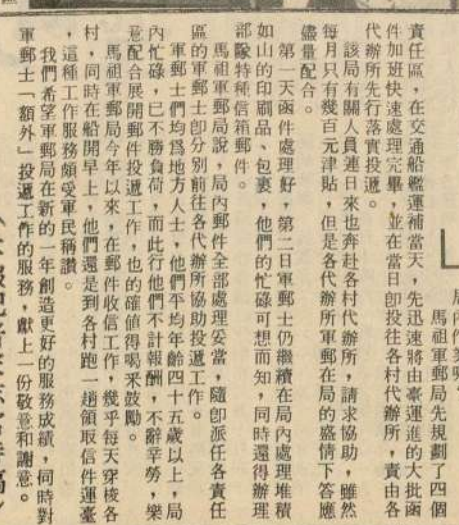 馬祖軍郵局先規劃了四個
責任區，在交通船艦運補當天，先迅速將由臺運進的大批函
件加班快速處理完畢，並在當日卽投往各村代辦所，責由各
代辦所先行落實投遞。
該局有關人員連日來也奔赴各村代辦所，請求協助，雖然
每月只有幾百元津貼，但是各代辦所軍郵在局的盛情下答應
儘量配合。
第一天函件處理好，第二日軍郵士仍繼續在局內處理堆積
如山的印刷品、包裹，他們的忙碌可想而知，同時還得辦理
部隊特種信箱郵件。
馬祖軍郵局說，局內郵件全部處理妥當，隨卽派任各責任
區的軍郵士卽分別前往各代辦所協助投遞工作。
軍郵士們均爲地方人士，他們平均年齡四十五歲以上，局
內忙碌，已不勝負荷，而此行他們不計報酬，不辭辛勞，樂
意配合展開郵件投遞工作，也的確值得喝釆鼓勵。
馬祖軍郵局今年以來，在郵件收信工作，幾乎每天穿梭各
村，同時在船開早上，他們還是到各村跑一趟領取信件運臺
，這種工作服務頗受軍民稱讚。
我們希望軍郵局在新的一年創造更好的服務成績，同時對
軍郵士「額外」投遞工作的服務，獻上一份敬意和謝意。